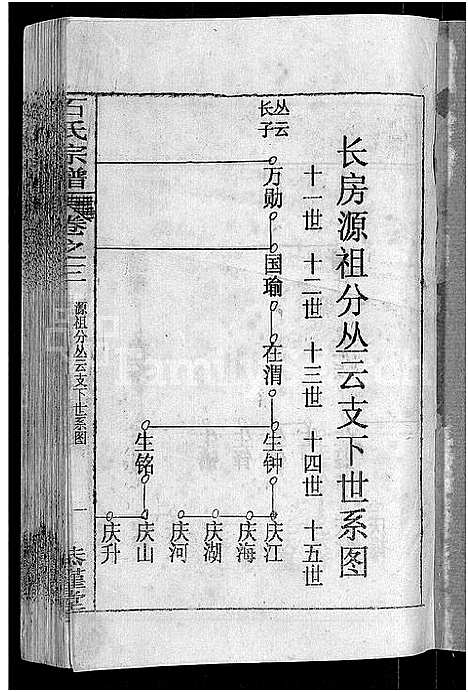 长房源祖分丛云支下世系图
十一世 十二世 十三世 十四世 十五世
丛云
长子
万勋
国瑜
在渭
生钟
生铭
庆江
庆海
庆湖
庆河
庆山
庆升
石氏宗谱
卷之三
源祖分丛云支下世系图
一